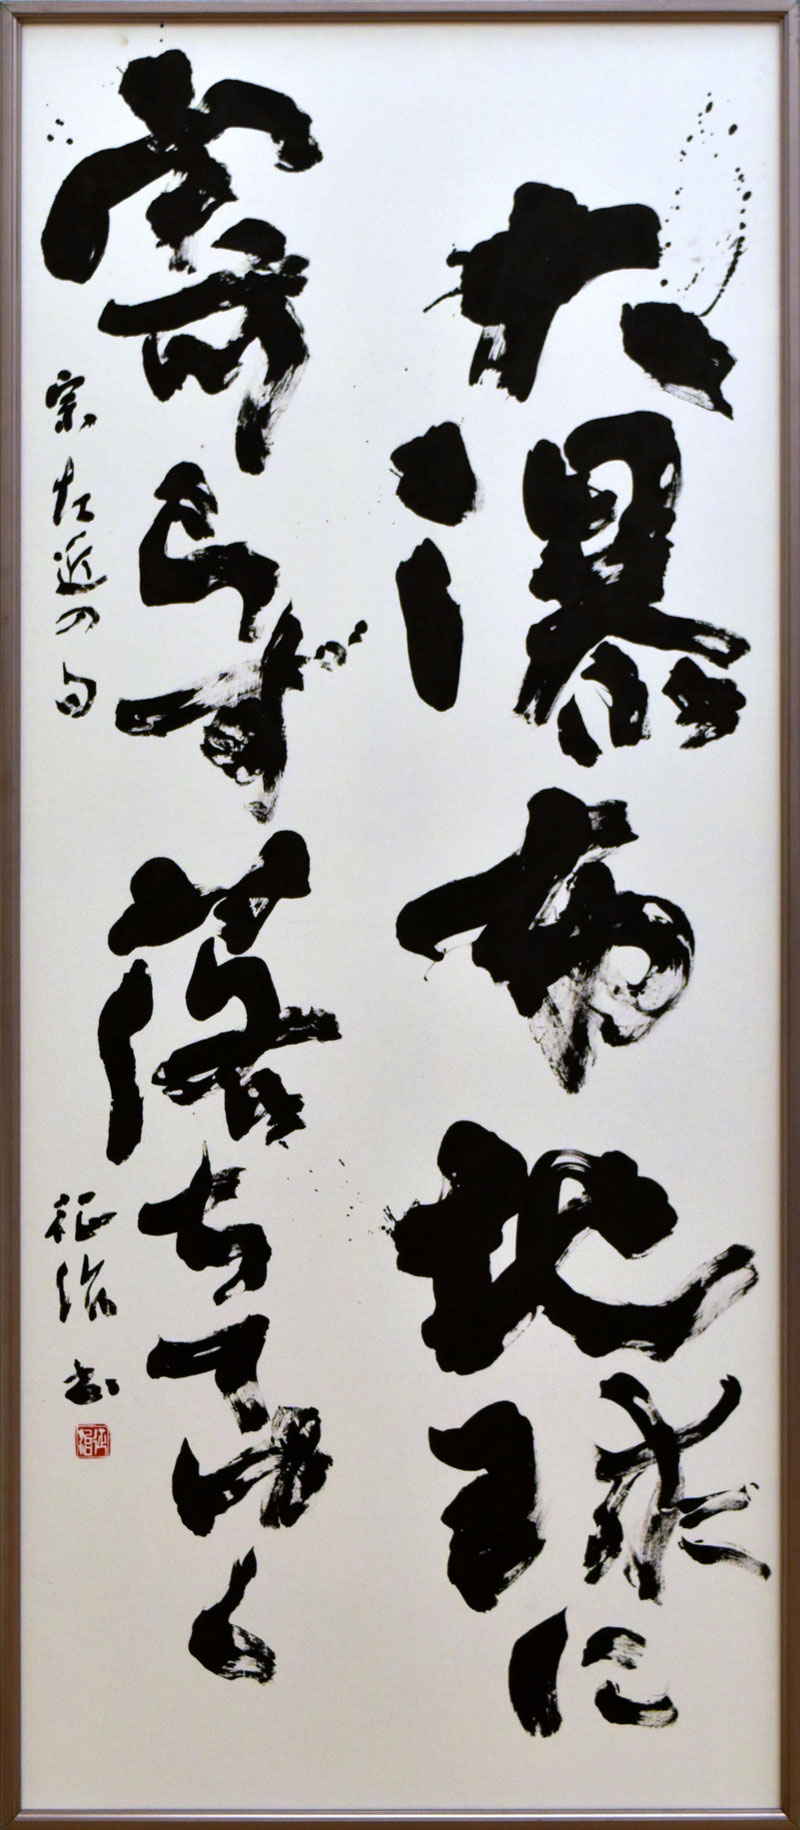 大瀑布地球に
寄らず落ちてゆく
宗左近の句
征治書